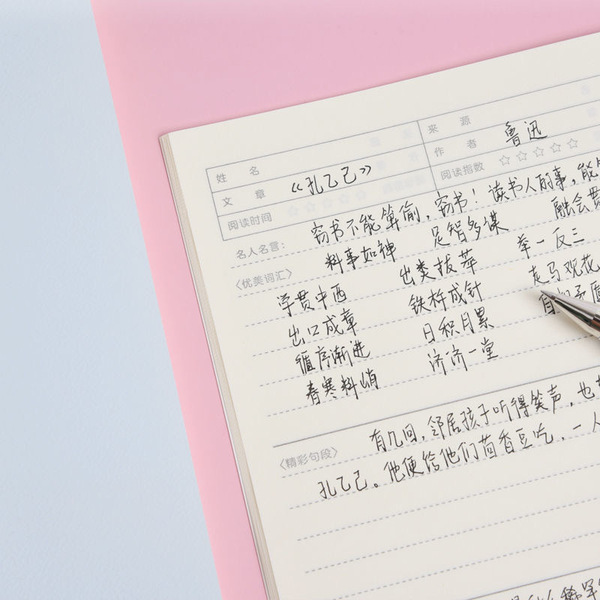 姓 名 来 源
文 章 《孔乙己》 作 者 鲁迅
阅读时间 ☆☆☆☆☆ 阅读指数 ☆☆☆☆☆
名人名言： 窃书不能算偷，窃书！读书人的事，能
〈优美词汇〉 料事如神 足智多谋 融会贯
学贯中西 出类拔萃 举一反三
出口成章 铁杵成针 走马观花
循序渐进 日积月累 自相矛盾
春寒料峭 济济一堂
〈精彩句段〉 有几回，邻居孩子听得笑声，也
孔乙己。他便给他们茴香豆吃，一人